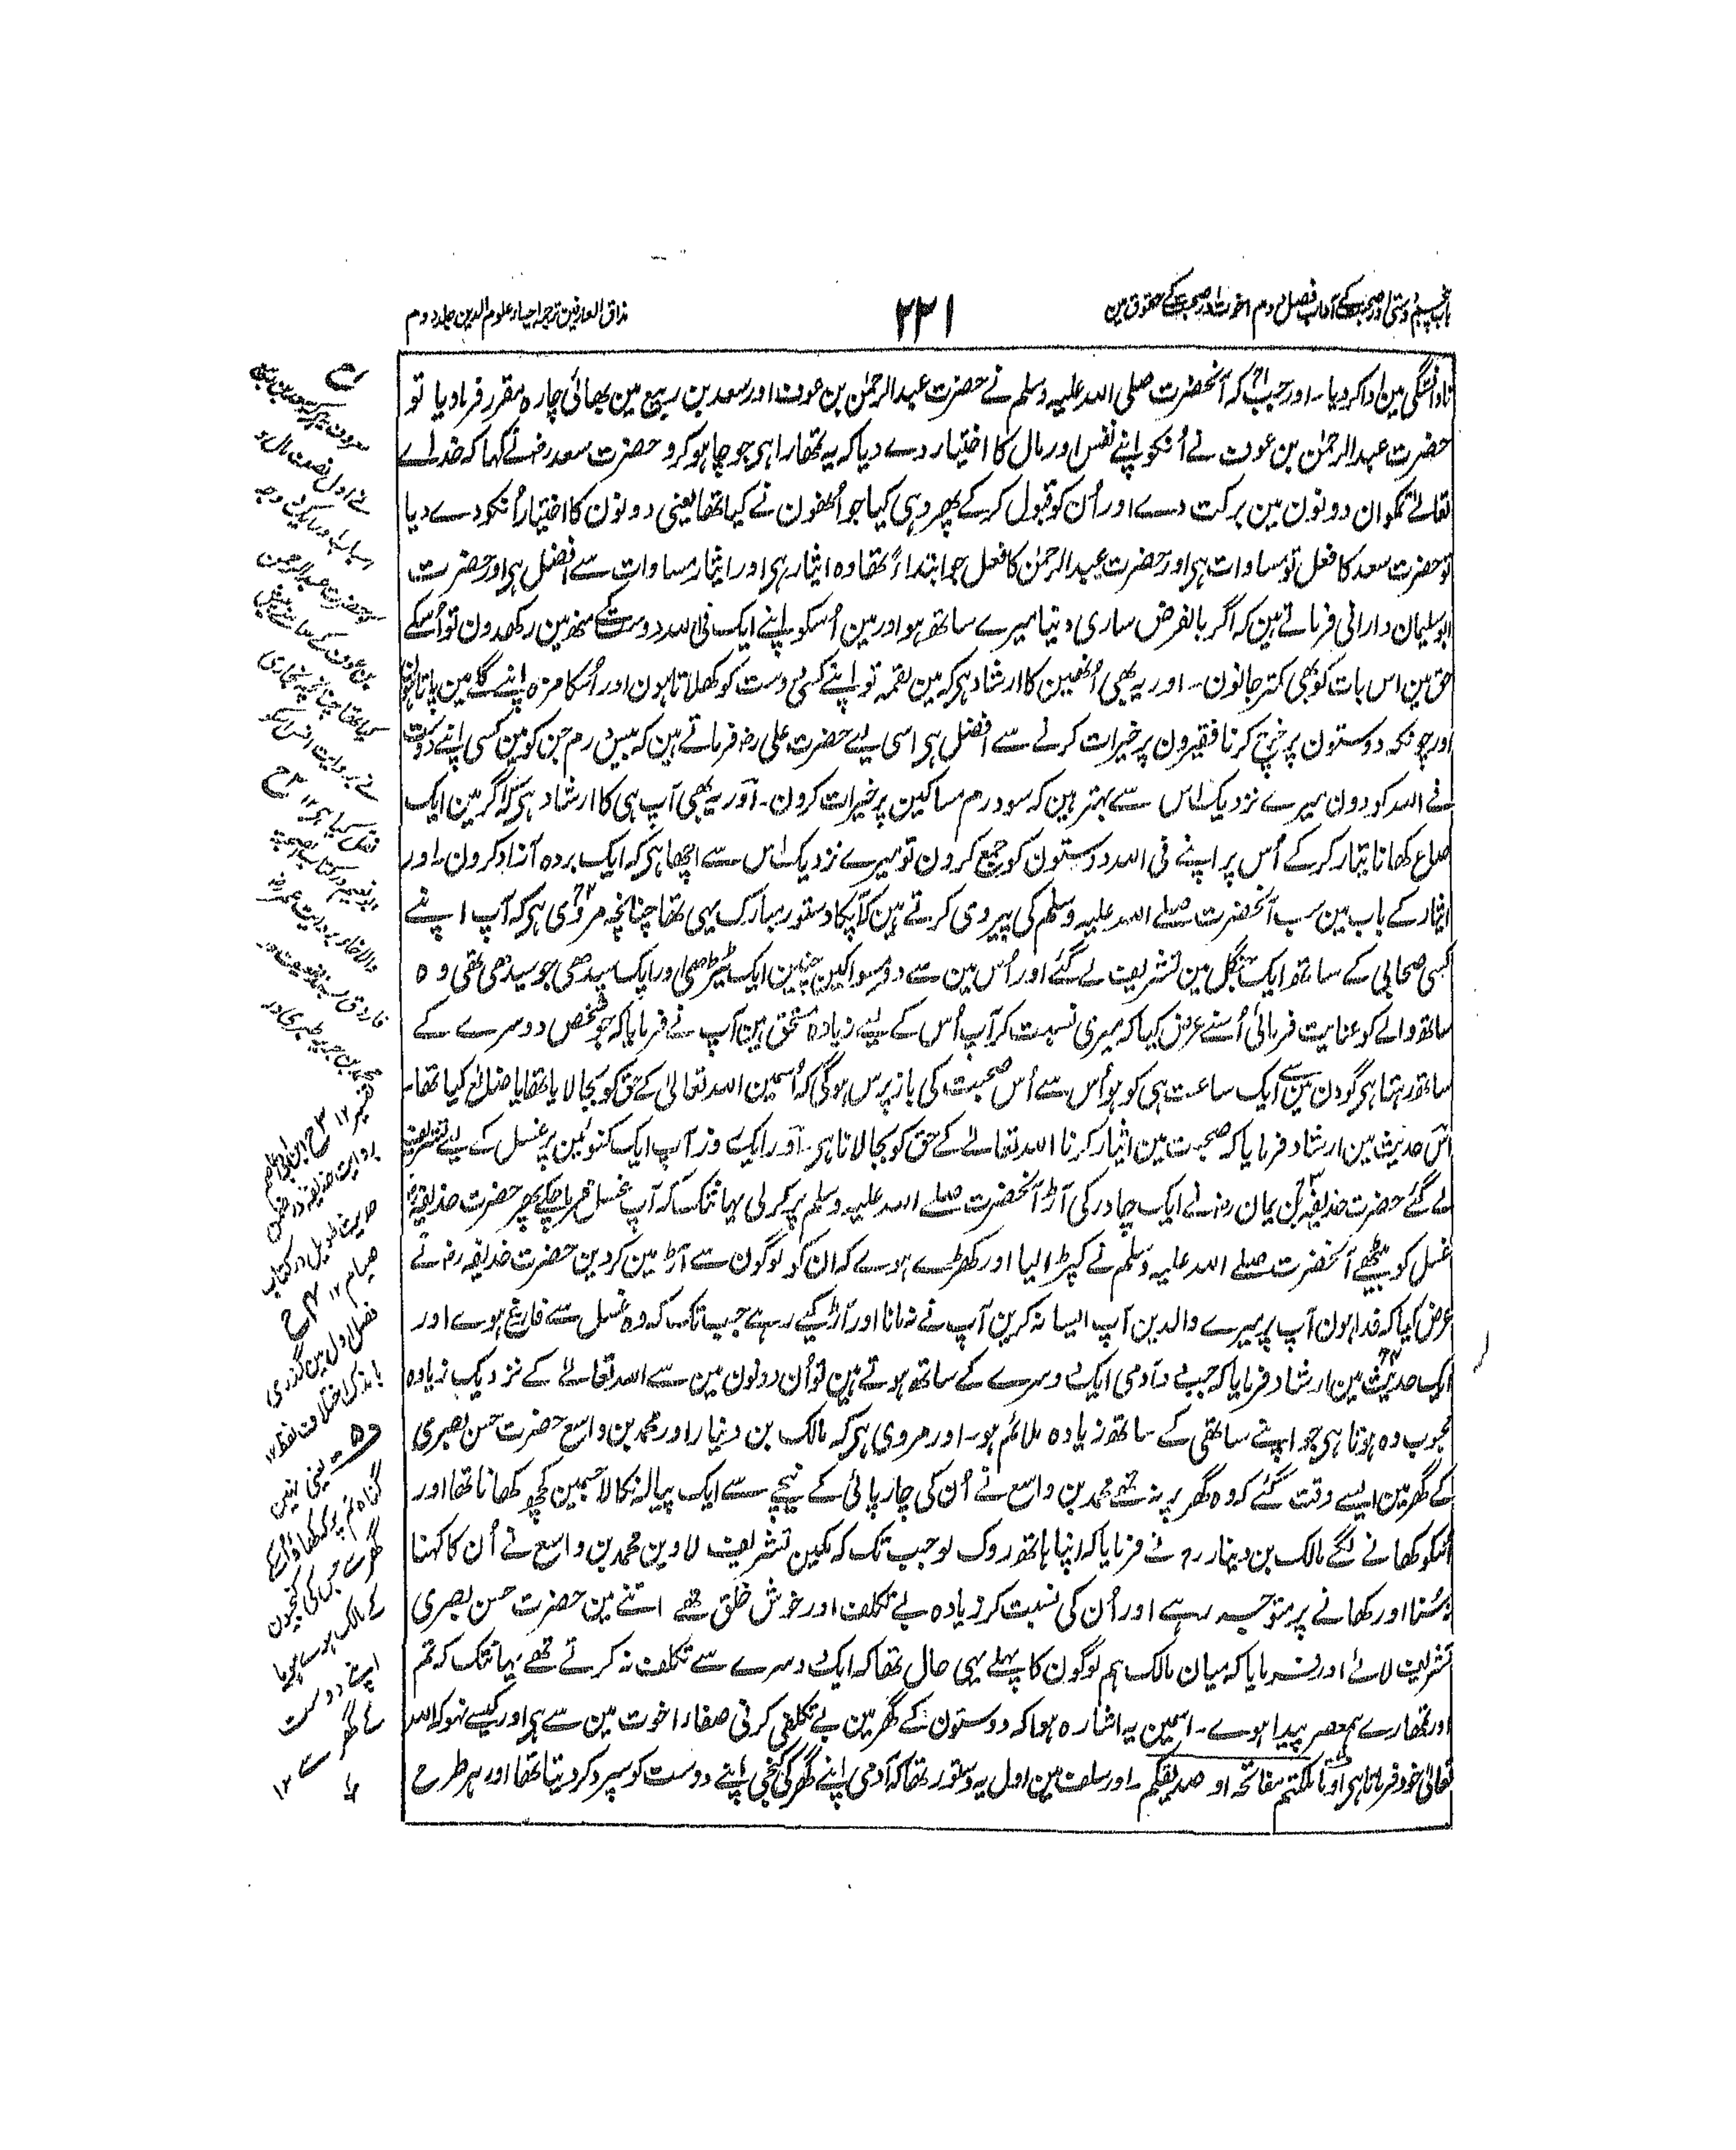 باب پنجم دوستی اور صحبت کے آداب فصل دوم اخوت اور صحبت کے حقوق مین
۲۳۱
مذاق العارفین ترجمہ احیاء علوم الدین جلد دوم
نادانستگی مین ادا کردیا۔ اور جب کہ آنحضرت صلی اللہ علیہ وسلم نے حضرت عبدالرحمٰن بن عوف اور سعد بن ربیع مین بھائی چارہ مقرر فرمادیا تو
حضرت عبدالرحمٰن بن عوف نے اُنکو اپنے نفس اور مال کا اختیار دے دیا کہ یہ تمھارا ہی جو چاہو کرو حضرت سعد رض نے کہا کہ خداے
تعالےٰ تمکو ان دونون مین برکت دے اور اُن کو قبول کرکے پھر وہی کیا جو اُنھون نے کیا تھا یعنی دونون کا اختیار اُنکو دے دیا
تو حضرت سعد کا فعل تو مساوات ہی اور حضرت عبدالرحمٰن کا فعل جو ابتداءً تھا وہ ایثار ہی اور ایثار مساوات سے افضل ہی اور حضرت
ابوسلیمان دارانی فرماتے ہین کہ اگر بالفرض ساری دنیا میرے ساتھ ہو اور مین اُسکو اپنے ایک فی اللہ دوست کے منھ مین رکھدون تو اُسکے
حق مین اس بات کو بھی کمتر جانون۔ اور یہ بھی اُنھین کا ارشاد ہی کہ مین لقمہ تو اپنے کسی دوست کو کھلاتا ہون اور اُسکا مزہ اپنے گلے مین پاتا ہون
اور چونکہ دوستون پر خرچ کرنا فقیرون پر خیرات کرنے سے افضل ہی اسی لیے حضرت علی رض فرماتے ہین کہ بیس درم جن کو مین کسی اپنے دوست
فے اللہ کو دون میرے نزدیک اس سے بہتر ہین کہ سو درم مساکین پر خیرات کرون۔ اور یہ بھی آپ ہی کا ارشاد ہی کہ اگر مین ایک
صاع کھانا تیار کرکے اُس پر اپنے فی اللہ دوستون کو جمع کرون تو میرے نزدیک اس سے اچھا ہی کہ ایک بردہ آزاد کرون۔ اور
ایثار کے باب مین سب آنحضرت صلے اللہ علیہ وسلم کی پیروی کرتے ہین کہ آپکا دستور مبارک یہی تھا چنانچہ مروی ہی کہ آپ اپنے
کسی صحابی کے ساتھ ایک جنگل مین تشریف لے گئے اور اُس مین سے دو مسواکین چنین ایک ٹیڑھی اور ایک سیدھی جو سیدھی تھی وہ
ساتھ والے کو عنایت فرمائی اُسنے عرض کیا کہ میری نسبت کر آپ اُس کے لیے زیادہ مستحق ہین آپ نے فرمایا کہ جو شخص دوسرے کے
ساتھ رہتا ہی گو دن مین سے ایک ساعت ہی کو ہو اُس سے اُس صحبت کی بازپرس ہوگی کہ اُسمین اللہ تعالیٰ کے حق کو بجالایا تھا یا ضائع کیا تھا۔
اس حدیث مین ارشاد فرمایا کہ صحبت مین ایثار کرنا اللہ تعالےٰ کے حق کو بجالانا ہی۔ اور ایک روز آپ ایک کنوئین پر غسل کے لیے تشریف
لے گئے حضرت حذیفہ بن یمان رض نے ایک چادر کی آڑ آنحضرت صلے اللہ علیہ وسلم پر کرلی یہانتک کہ آپ غسل فرماچکے پھر حضرت حذیفہ رض
غسل کو بیٹھے آنحضرت صلے اللہ علیہ وسلم نے کپڑا لیا اور کھڑے ہوے کہ ان کو لوگون سے آڑ مین کردین حضرت حذیفہ رض نے
عرض کیا کہ فدا ہون آپ پر میرے والدین آپ ایسا نہ کرین آپ نے نہ مانا اور آڑ کیے رہے جب تک کہ وہ غسل سے فارغ ہوے اور
ایک حدیث مین ارشاد فرمایا کہ جب دو آدمی ایک دوسرے کے ساتھ ہوتے ہین تو اُن دونون مین سے اللہ تعالےٰ کے نزدیک زیادہ
محبوب وہ ہوتا ہی جو اپنے ساتھی کے ساتھ زیادہ ملائم ہو۔ اور مروی ہی کہ مالک بن دینار اور محمد بن واسع حضرت حسن بصری
کے گھر مین ایسے وقت گئے کہ وہ گھر پر نہ تھے محمد بن واسع نے اُن کی چارپائی کے نیچے سے ایک پیالہ نکالا جسمین کچھ کھانا تھا اور
اُسکو کھانے لگے مالک بن دینار رح نے فرمایا کہ اپنا ہاتھ روک لو جب تک کہ مکین تشریف لاوین محمد بن واسع نے اُن کا کہنا
نہ سُنا اور کھانے پر متوجہ رہے اور اُن کی نسبت کر زیادہ بے تکلف اور خوش خلق تھے اتنے مین حضرت حسن بصری
تشریف لائے اور فرمایا کہ میان مالک ہم لوگون کا پہلے یہی حال تھا کہ ایک دوسرے سے تکلف نہ کرتے تھے یہانتک کہ تم
اور تمھارے ہمعصر پیدا ہوے۔ اسمین یہ اشارہ ہوا کہ دوستون کے گھر مین بے تکلفی کرنی صفاء اخوت مین سے ہی اور کیسے نہو کہ اللہ
تعالیٰ خود فرماتا ہی او ما ملکتم مفاتحہ او صدیقکم۔ اور سلف مین اول یہ دستور تھا کہ آدمی اپنے گھر کی کنجی اپنے دوست کو سپرد کردیتا تھا اور ہر طرح
حضرت عبدالرحمن
نقل کیا ہی ۱۲
تفسیر ۱۲
حدیث طویل در کتاب
صیام ۱۲
فصل اول مین گذری
باندک اختلاف لفظ ۱۲
یعنی نہین
گناہ تم پر کہ کھاؤ اُس
گھر سے جس کی کنجیون
کے مالک ہوے ہو یا
اپنے دوست
کے گھر
سے ۱۲